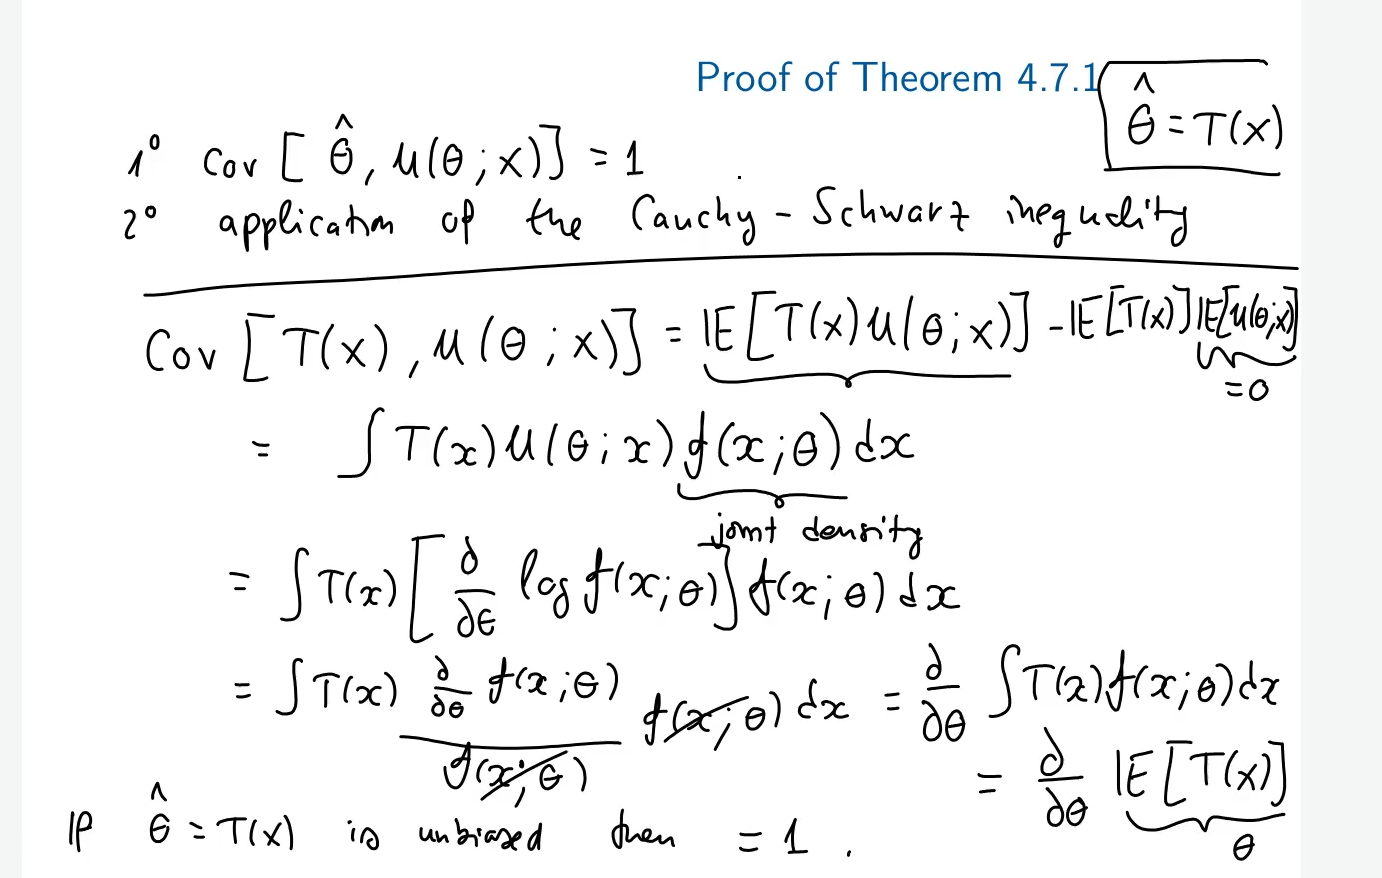 Proof of Theorem 4.7.1
θ̂ = T(X)
1° Cov [ θ̂, U(θ; X)] = 1
2° application of the Cauchy - Schwarz inequality
Cov [T(X), U(θ; X)] = IE[T(X) U(θ; X)] - IE[T(X)] IE[U(θ; X)]
= 0
= ∫ T(x) U(θ; x) f(x; θ) dx
joint density
= ∫ T(x) [ ∂/∂θ log f(x; θ)] f(x; θ) dx
= ∫ T(x) ∂/∂θ f(x; θ) / f(x; θ) f(x; θ) dx = ∂/∂θ ∫ T(x) f(x; θ) dx
= ∂/∂θ IE[T(X)]
θ
If θ̂ = T(X) is unbiased then = 1 .